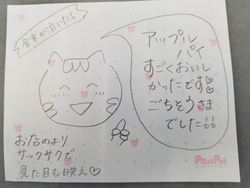 全米が泣いた!!
アップル
パイ
すごくおいし
かったです♡
ごちそうさま
でした!!
お店のより
サックサクで
見た目も映え♡